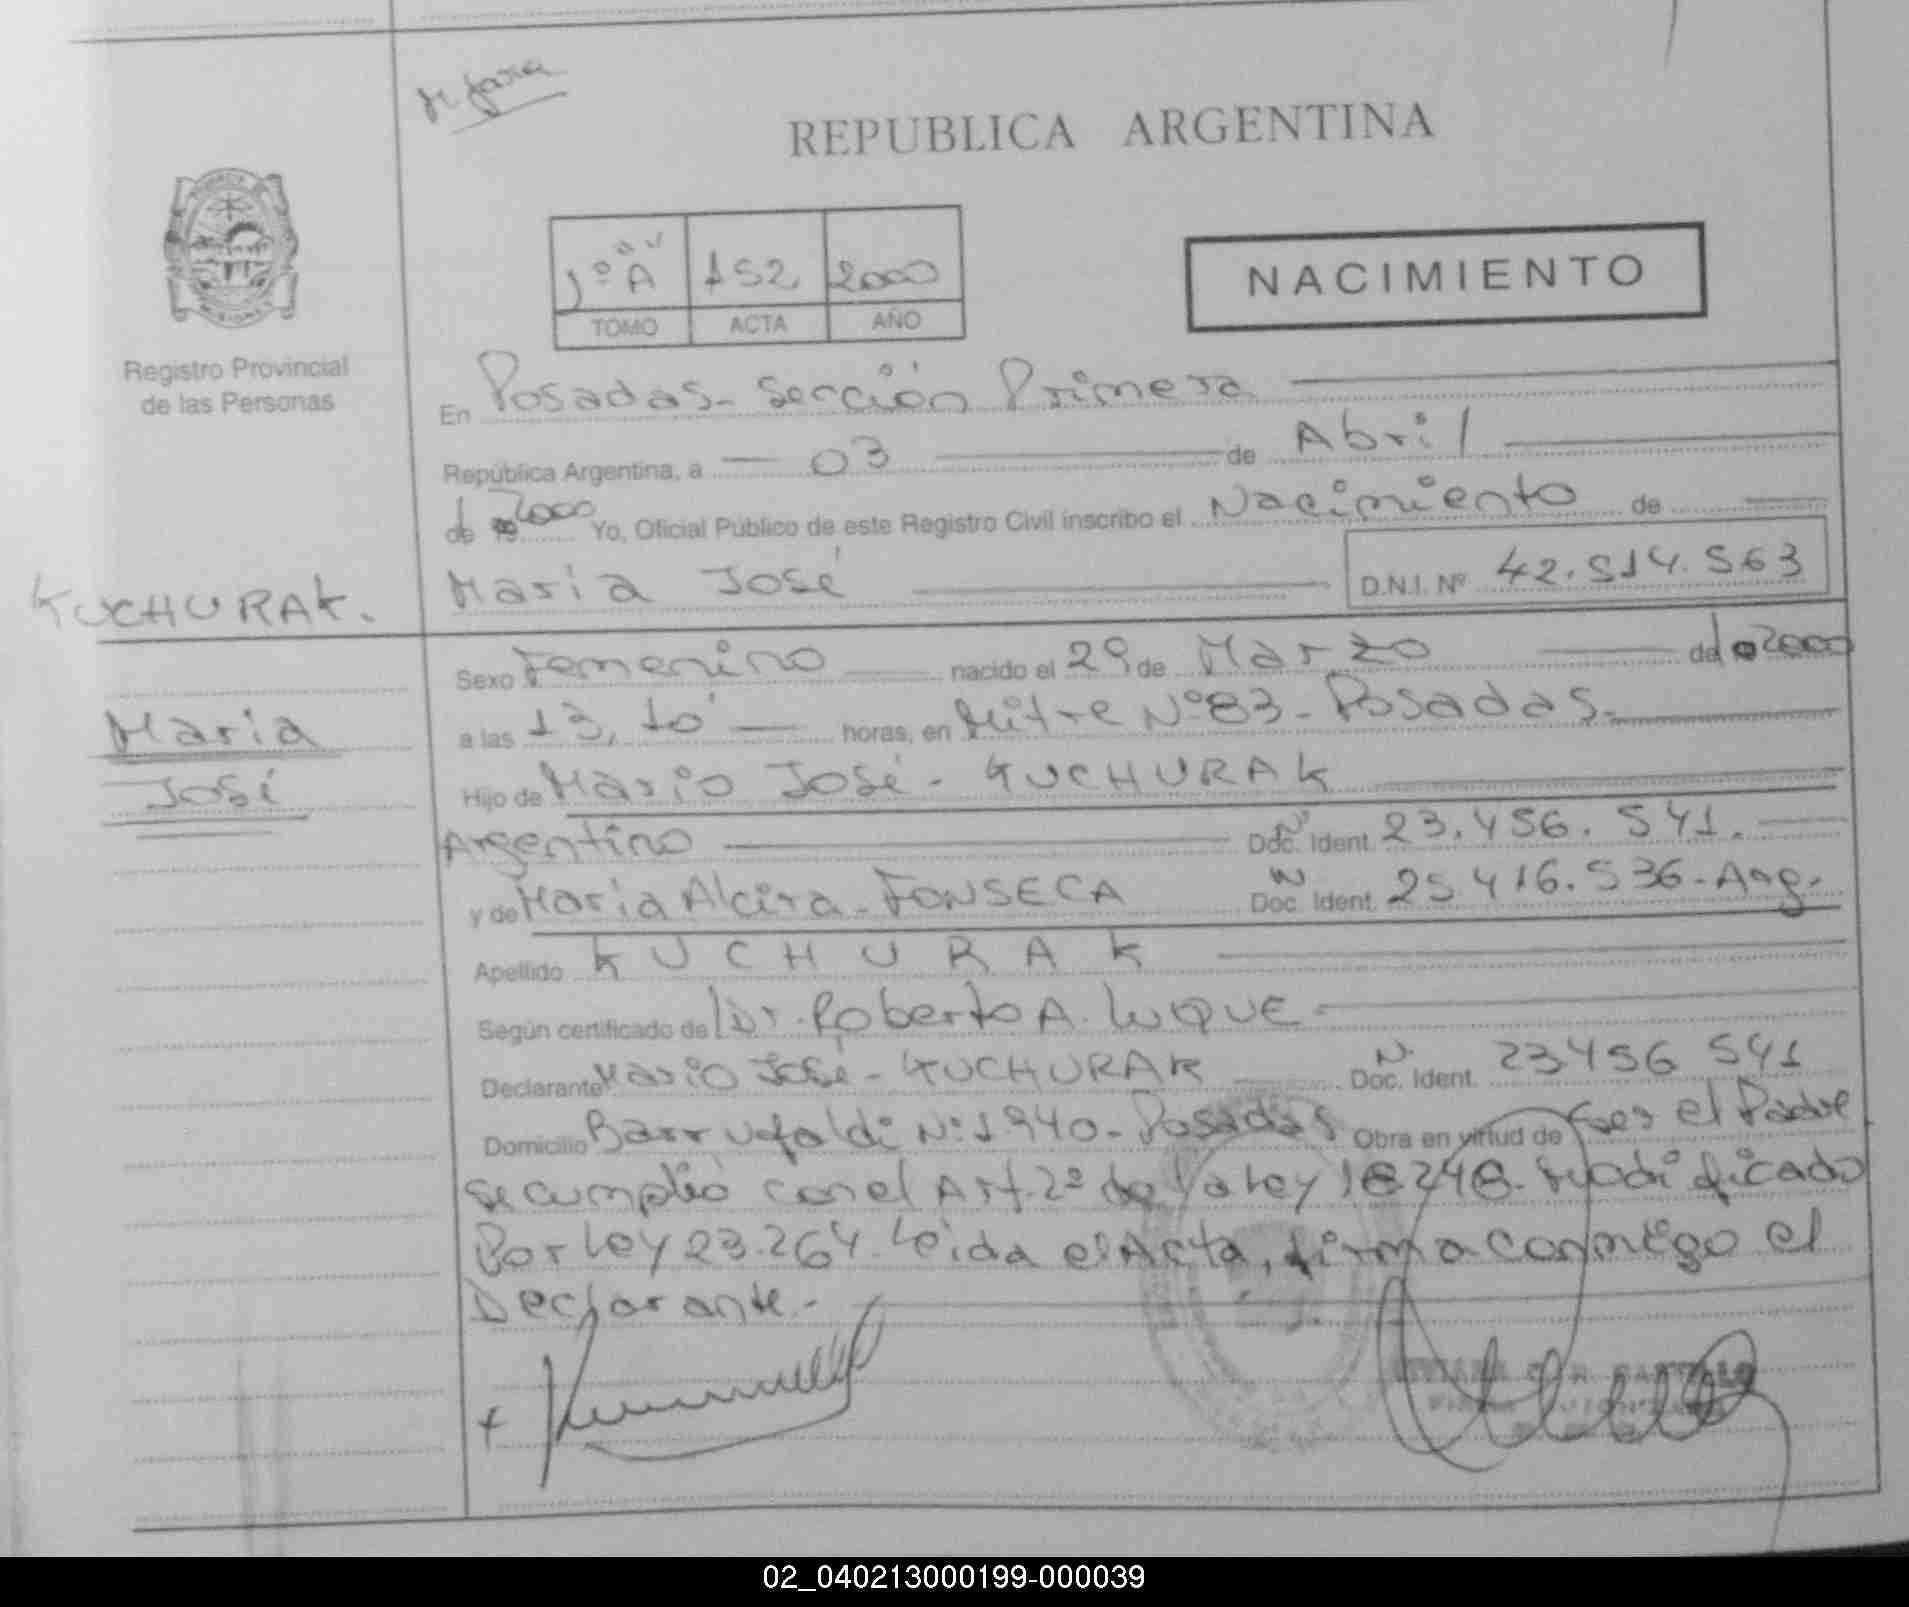 REPUBLICA ARGENTINA
1º A 152 2000
TOMO ACTA AÑO
NACIMIENTO
Registro Provincial
de las Personas
En Posadas - Sección Primera
República Argentina, a 03 de Abril
de 2000 Yo, Oficial Público de este Registro Civil inscribo el Nacimiento de
KUCHURAK.
María José D.N.I. Nº 42.514.563
Sexo Femenino nacido el 29 de Marzo de 2000
María
José
a las 13,10 horas, en Mitre Nº 83 - Posadas -
Hijo de Mario José - KUCHURAK
Argentino Doc. Ident. Nº 23.456.541.
y de María Alcira - FONSECA Doc. Ident. Nº 25.416.536 - Arg.
Apellido KUCHURAK
Según certificado de Dr. Roberto A. LUQUE -
Declarante Mario José - KUCHURAK Doc. Ident. N. 23456541
Domicilio Barrufaldi Nº 1940 - Posadas Obra en virtud de ser el Padre
se cumplió con el Art. 2º de la Ley 18248 - Modificado
Por Ley 23.264. Leída el Acta, firma conmigo el
Declarante. -
02_040213000199-000039